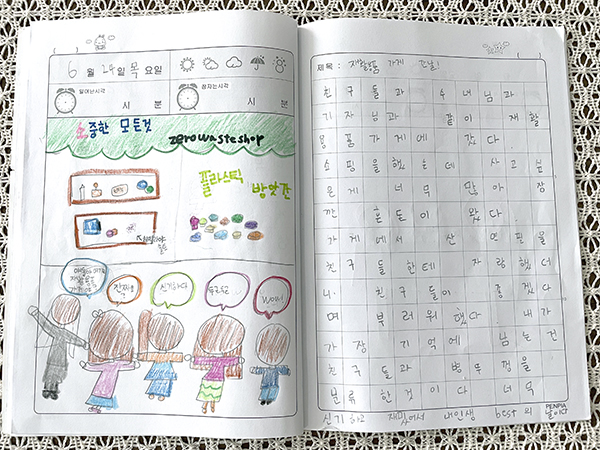 6 월 24 일 목 요일
일어난시각 시 분 잠자는시각 시 분
소중한 모든것 zerowasteshop
플라스틱
방앗간
신기하다
제목 : 재활용품 가게 간날!
친구들과 수녀님과
기자님과 같이 재활
용품 가게에 갔다.
쇼핑을 했는데 사고싶
은게 너무 많아 잠
깐 혼돈이 왔다.
가게에서 산 연필을
친구들한테 자랑했더
니. 친구들이 좋겠다
며 부러워했다 내가
가장 기억에 남는건
친구들과 병뚜껑을
분류한것이다 너무
신기하고 재밌어서 내인생 best의
PENPIA
날이다